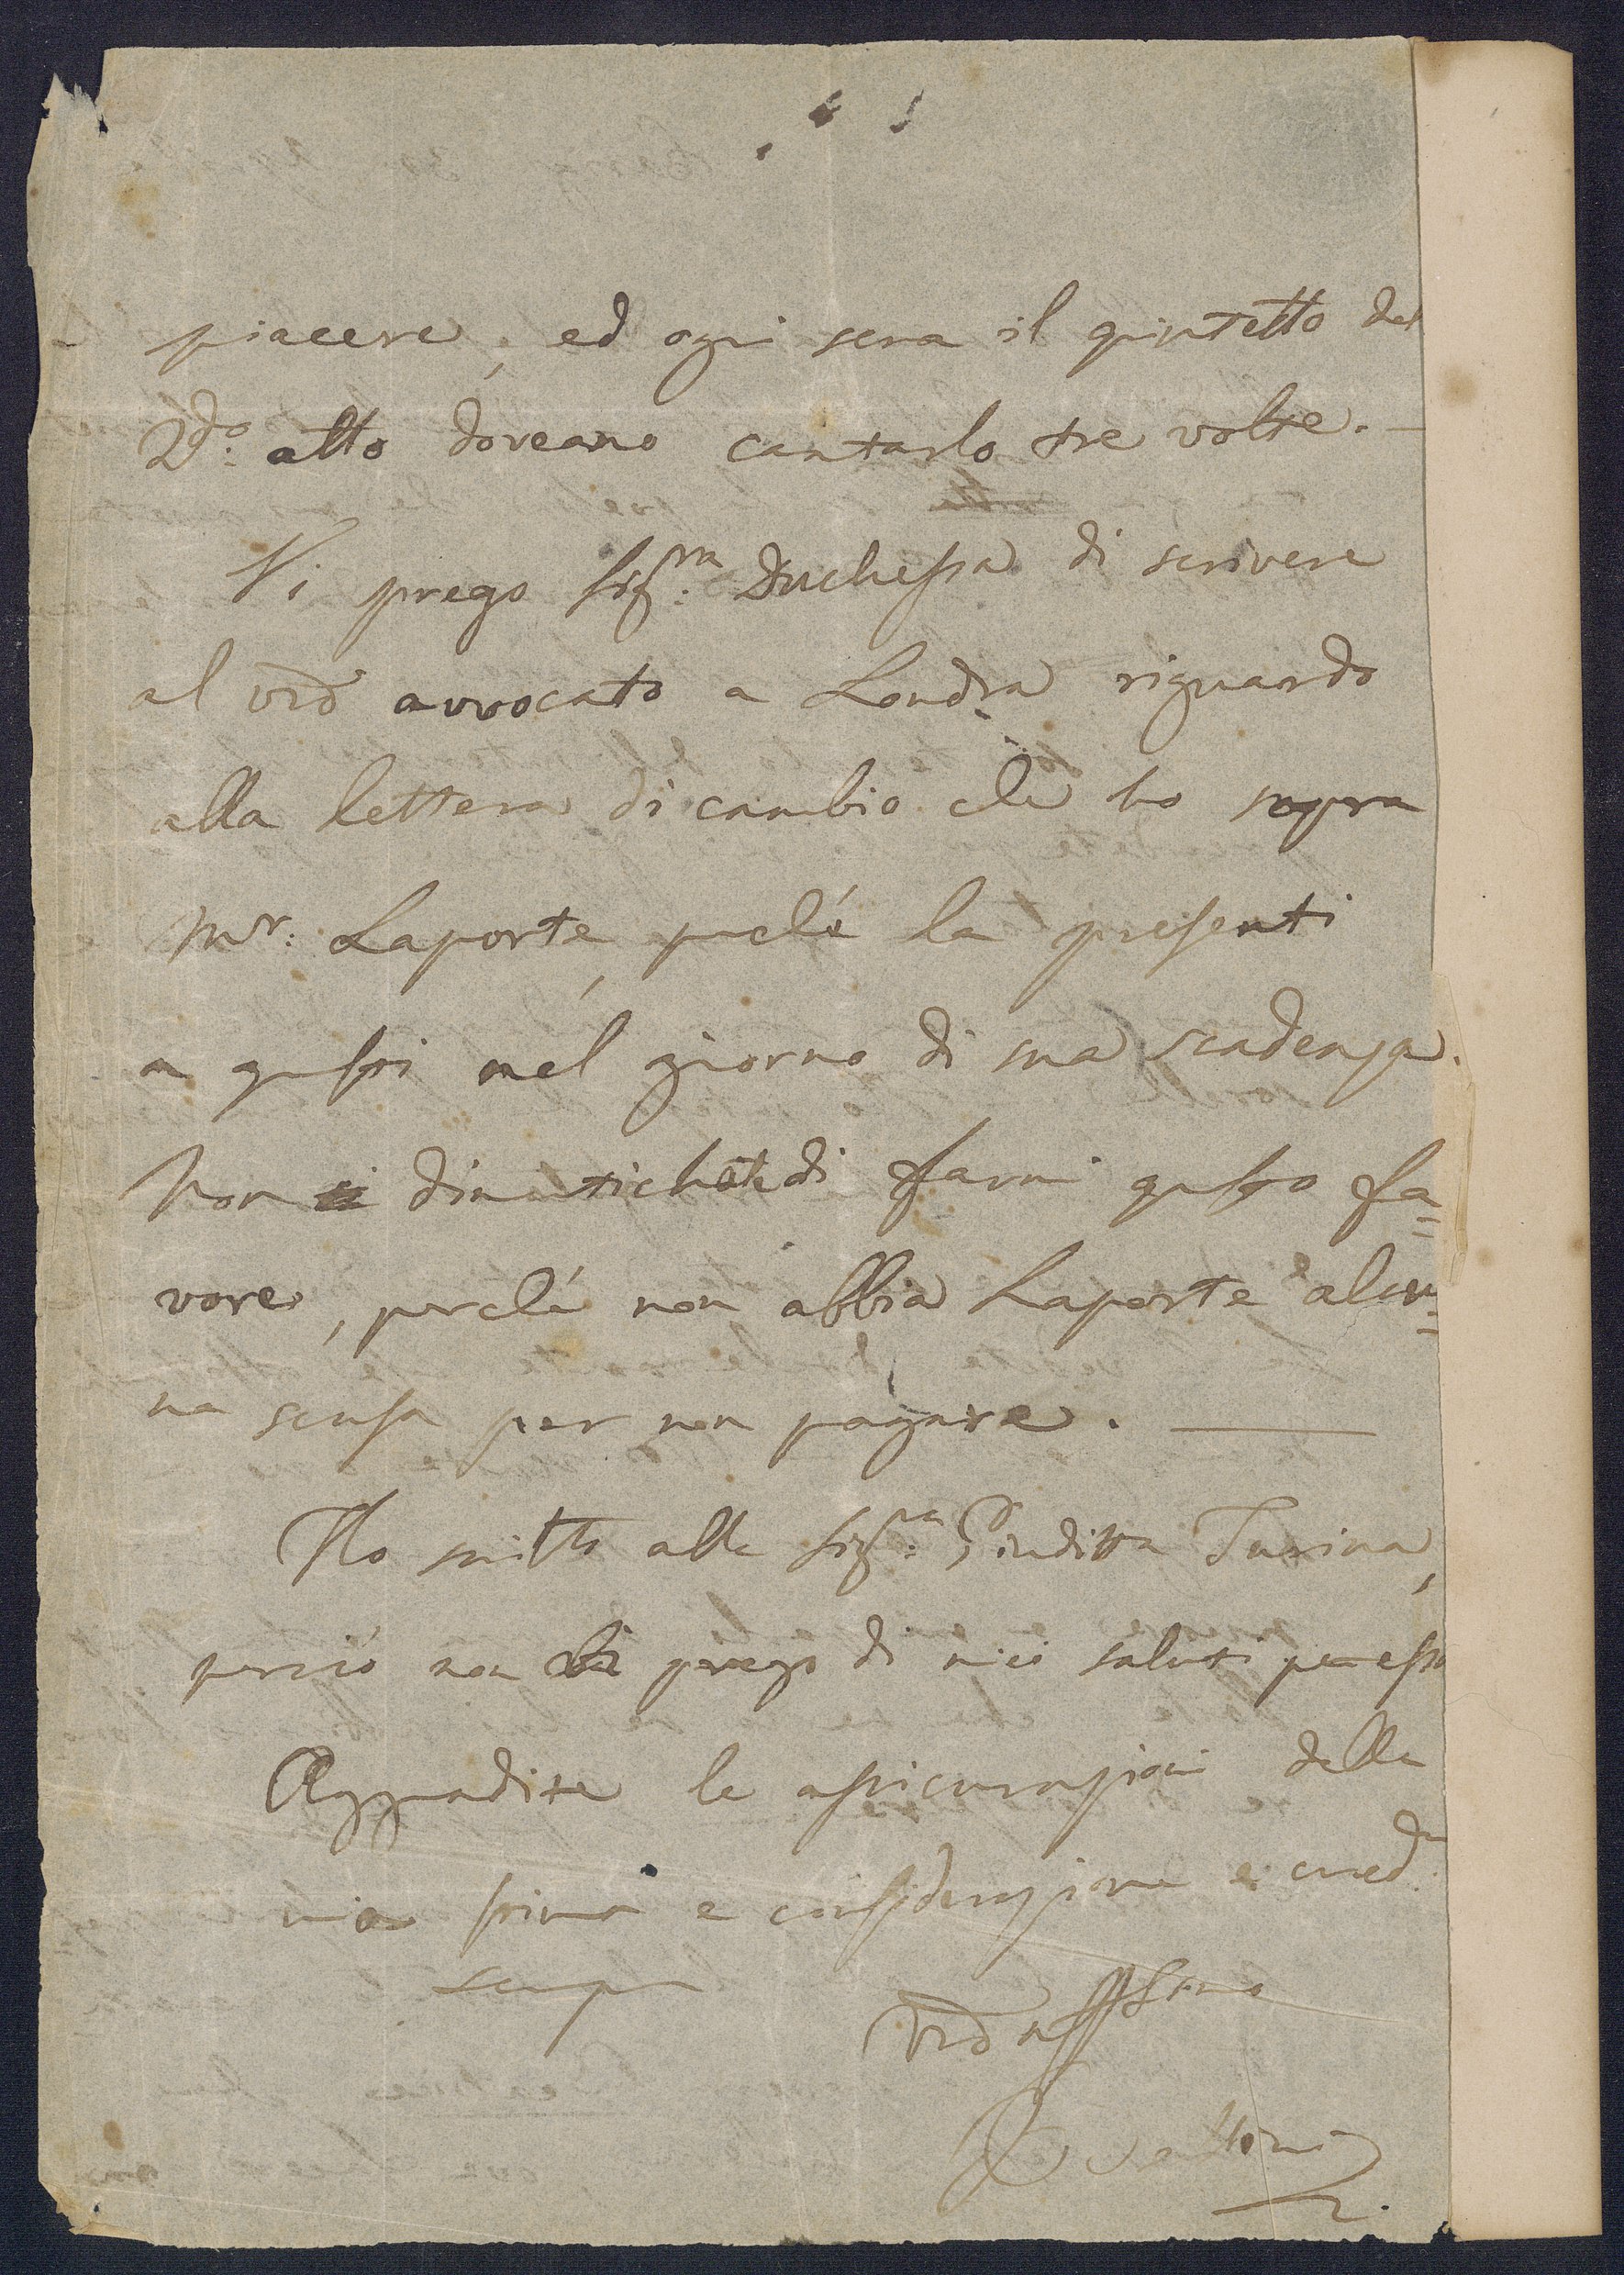 piacere, ed ogni sera il quintetto del
2do: atto doveano cantarlo tre volte. —
Vi prego Sigra: Duchessa di scrivere
al vro avvocato a Londra riguardo
alla lettera di cambio che ho sopra
Mr: Laporte, perché la presenti
a questi nel giorno di sua scadenza.
Non dimentichate di farmi questo fa=
vore, perché non abbia Laporte alcu=
na scusa per non pagare. —
Ho scritto alla Sigra: Giuditta Turina,
perciò non vi prego di miei saluti per essa
Aggradite le assicurazioni della
mia stima e considerazione e credmi
sempre
Vro affssimo